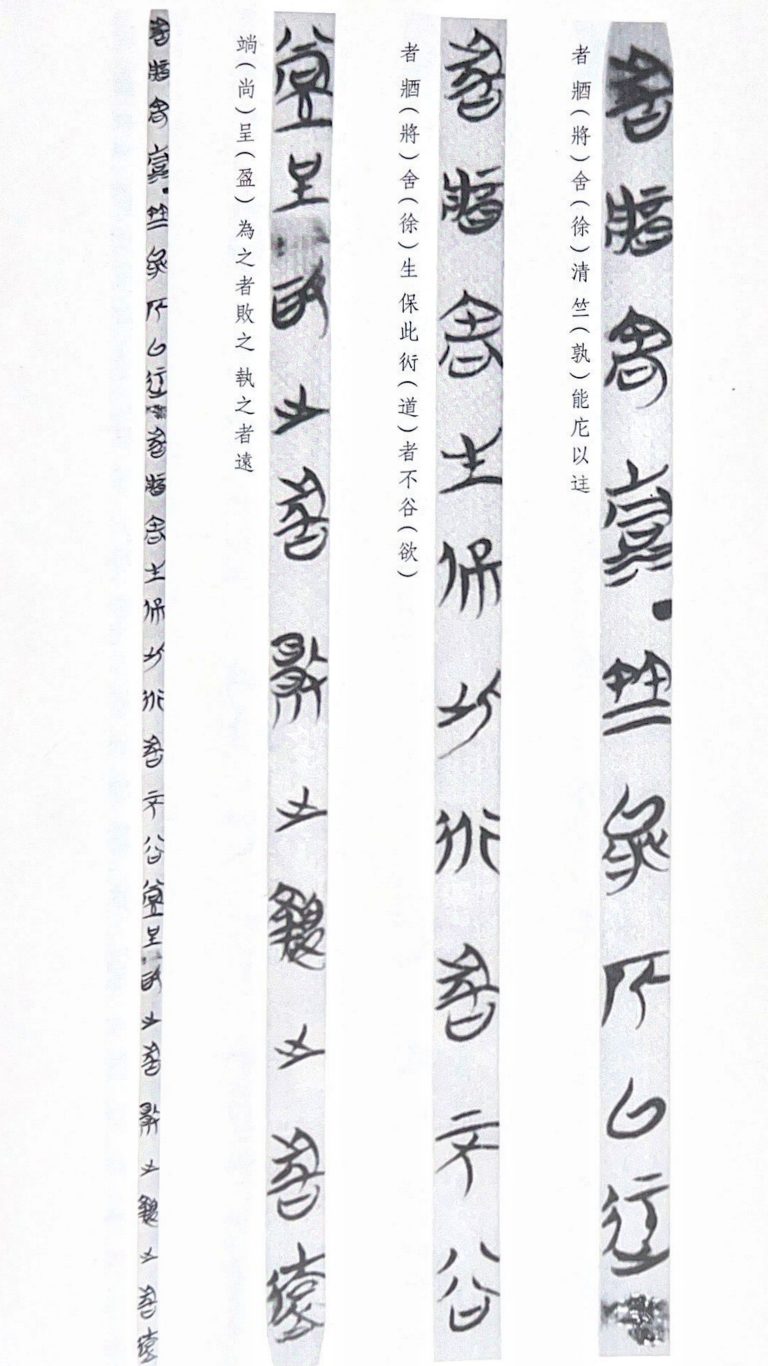 者 𨡓(將)舍(徐)清 竺(孰)能庀以迬
者 𨡓(將)舍(徐)生 保此衍(道)者不谷(欲)
端(尚)呈(盈) 為之者敗之 執之者遠